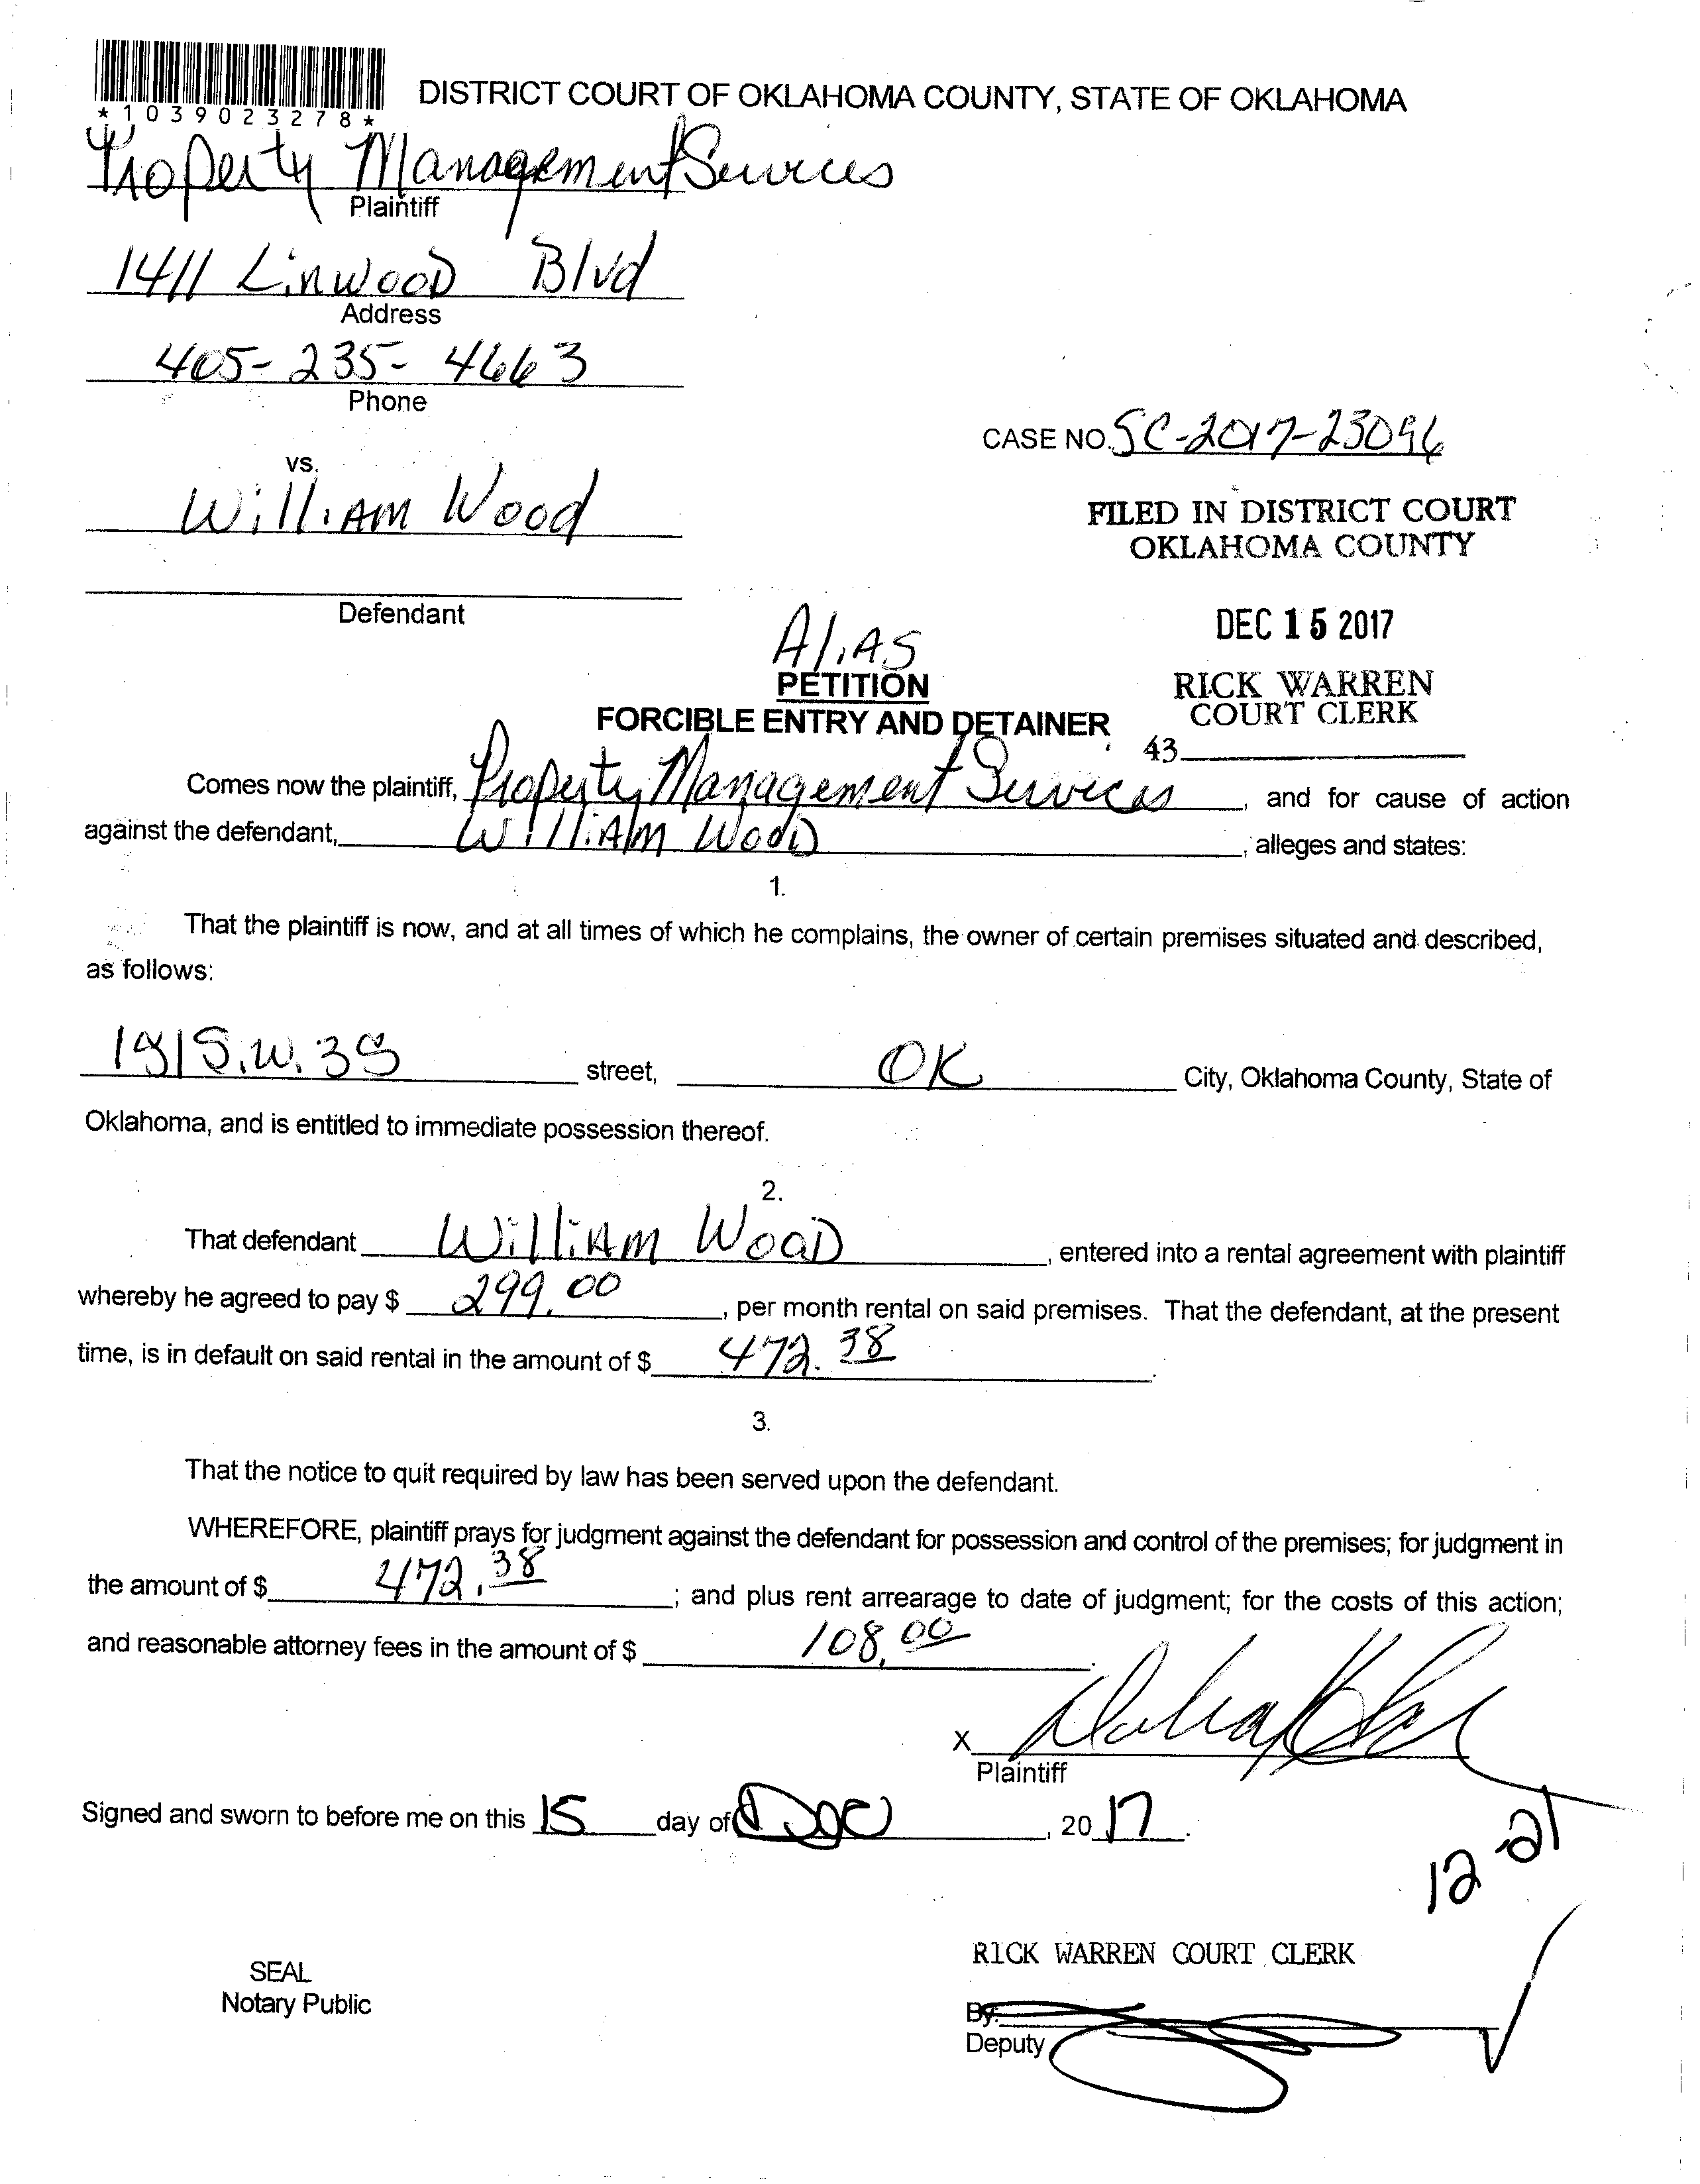 *1039023278*
DISTRICT COURT OF OKLAHOMA COUNTY, STATE OF OKLAHOMA
Property Management Services
Plaintiff
1411 Linwood Blvd
Address
405-235-4663
Phone
CASE NO. SC-2017-23096
vs.
William Wood
FILED IN DISTRICT COURT
OKLAHOMA COUNTY
Defendant
DEC 15 2017
Alias
PETITION
RICK WARREN
COURT CLERK
FORCIBLE ENTRY AND DETAINER
43
Comes now the plaintiff, Property Management Services, and for cause of action
against the defendant, William Wood, alleges and states:
1.
That the plaintiff is now, and at all times of which he complains, the owner of certain premises situated and described,
as follows:
S.W. street, OK City, Oklahoma County, State of
Oklahoma, and is entitled to immediate possession thereof.
2.
That defendant William Wood, entered into a rental agreement with plaintiff
whereby he agreed to pay $ 299.00, per month rental on said premises. That the defendant, at the present
time, is in default on said rental in the amount of $ 472.38.
3.
That the notice to quit required by law has been served upon the defendant.
WHEREFORE, plaintiff prays for judgment against the defendant for possession and control of the premises; for judgment in
the amount of $ 472.38; and plus rent arrearage to date of judgment; for the costs of this action;
and reasonable attorney fees in the amount of $ 108.00.
X
Plaintiff
Signed and sworn to before me on this 15 day of Dec, 2017.
12-21
RICK WARREN COURT CLERK
SEAL
Notary Public
By:
Deputy